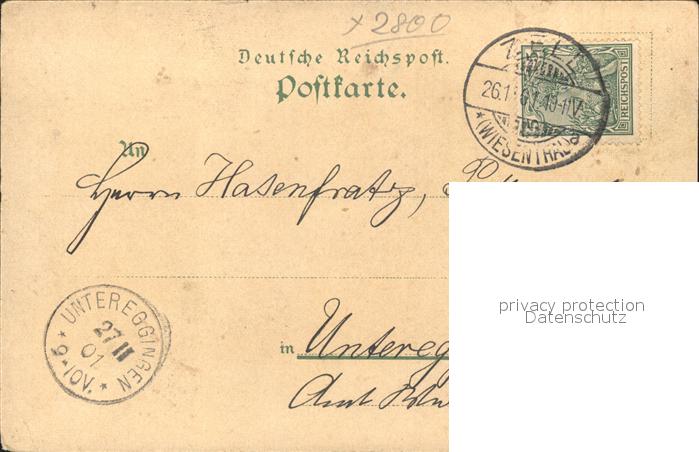 x 2800
Deutsche Reichspost.
Postkarte.
REICHSPOST
ZELL
(WIESENTHAL)
An
Herrn Hasenfratz,
UNTEREGGINGEN
27 11
01
9-10V.
in Untereg
Amt
privacy protection
Datenschutz